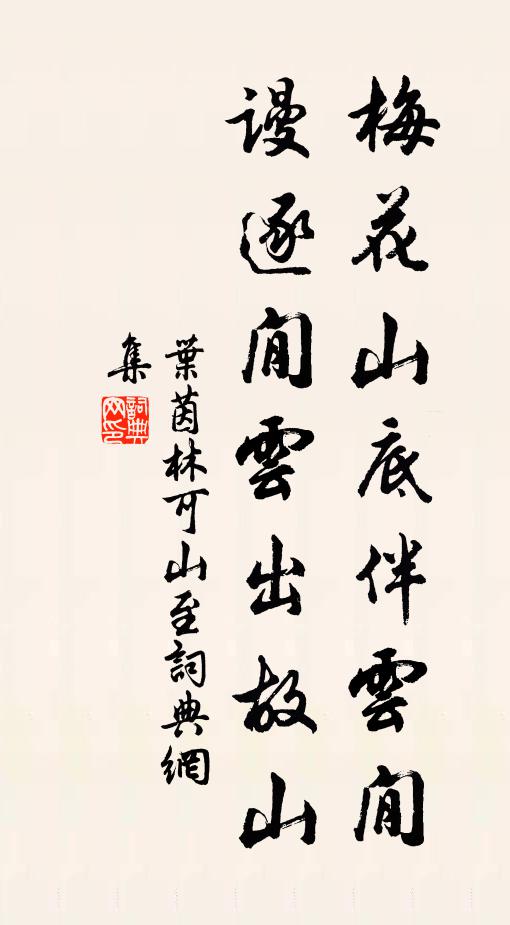 梅花山底伴雲閒
謾逐閒雲出故山
葉茵林可山至詞典網
集
詞典
网印